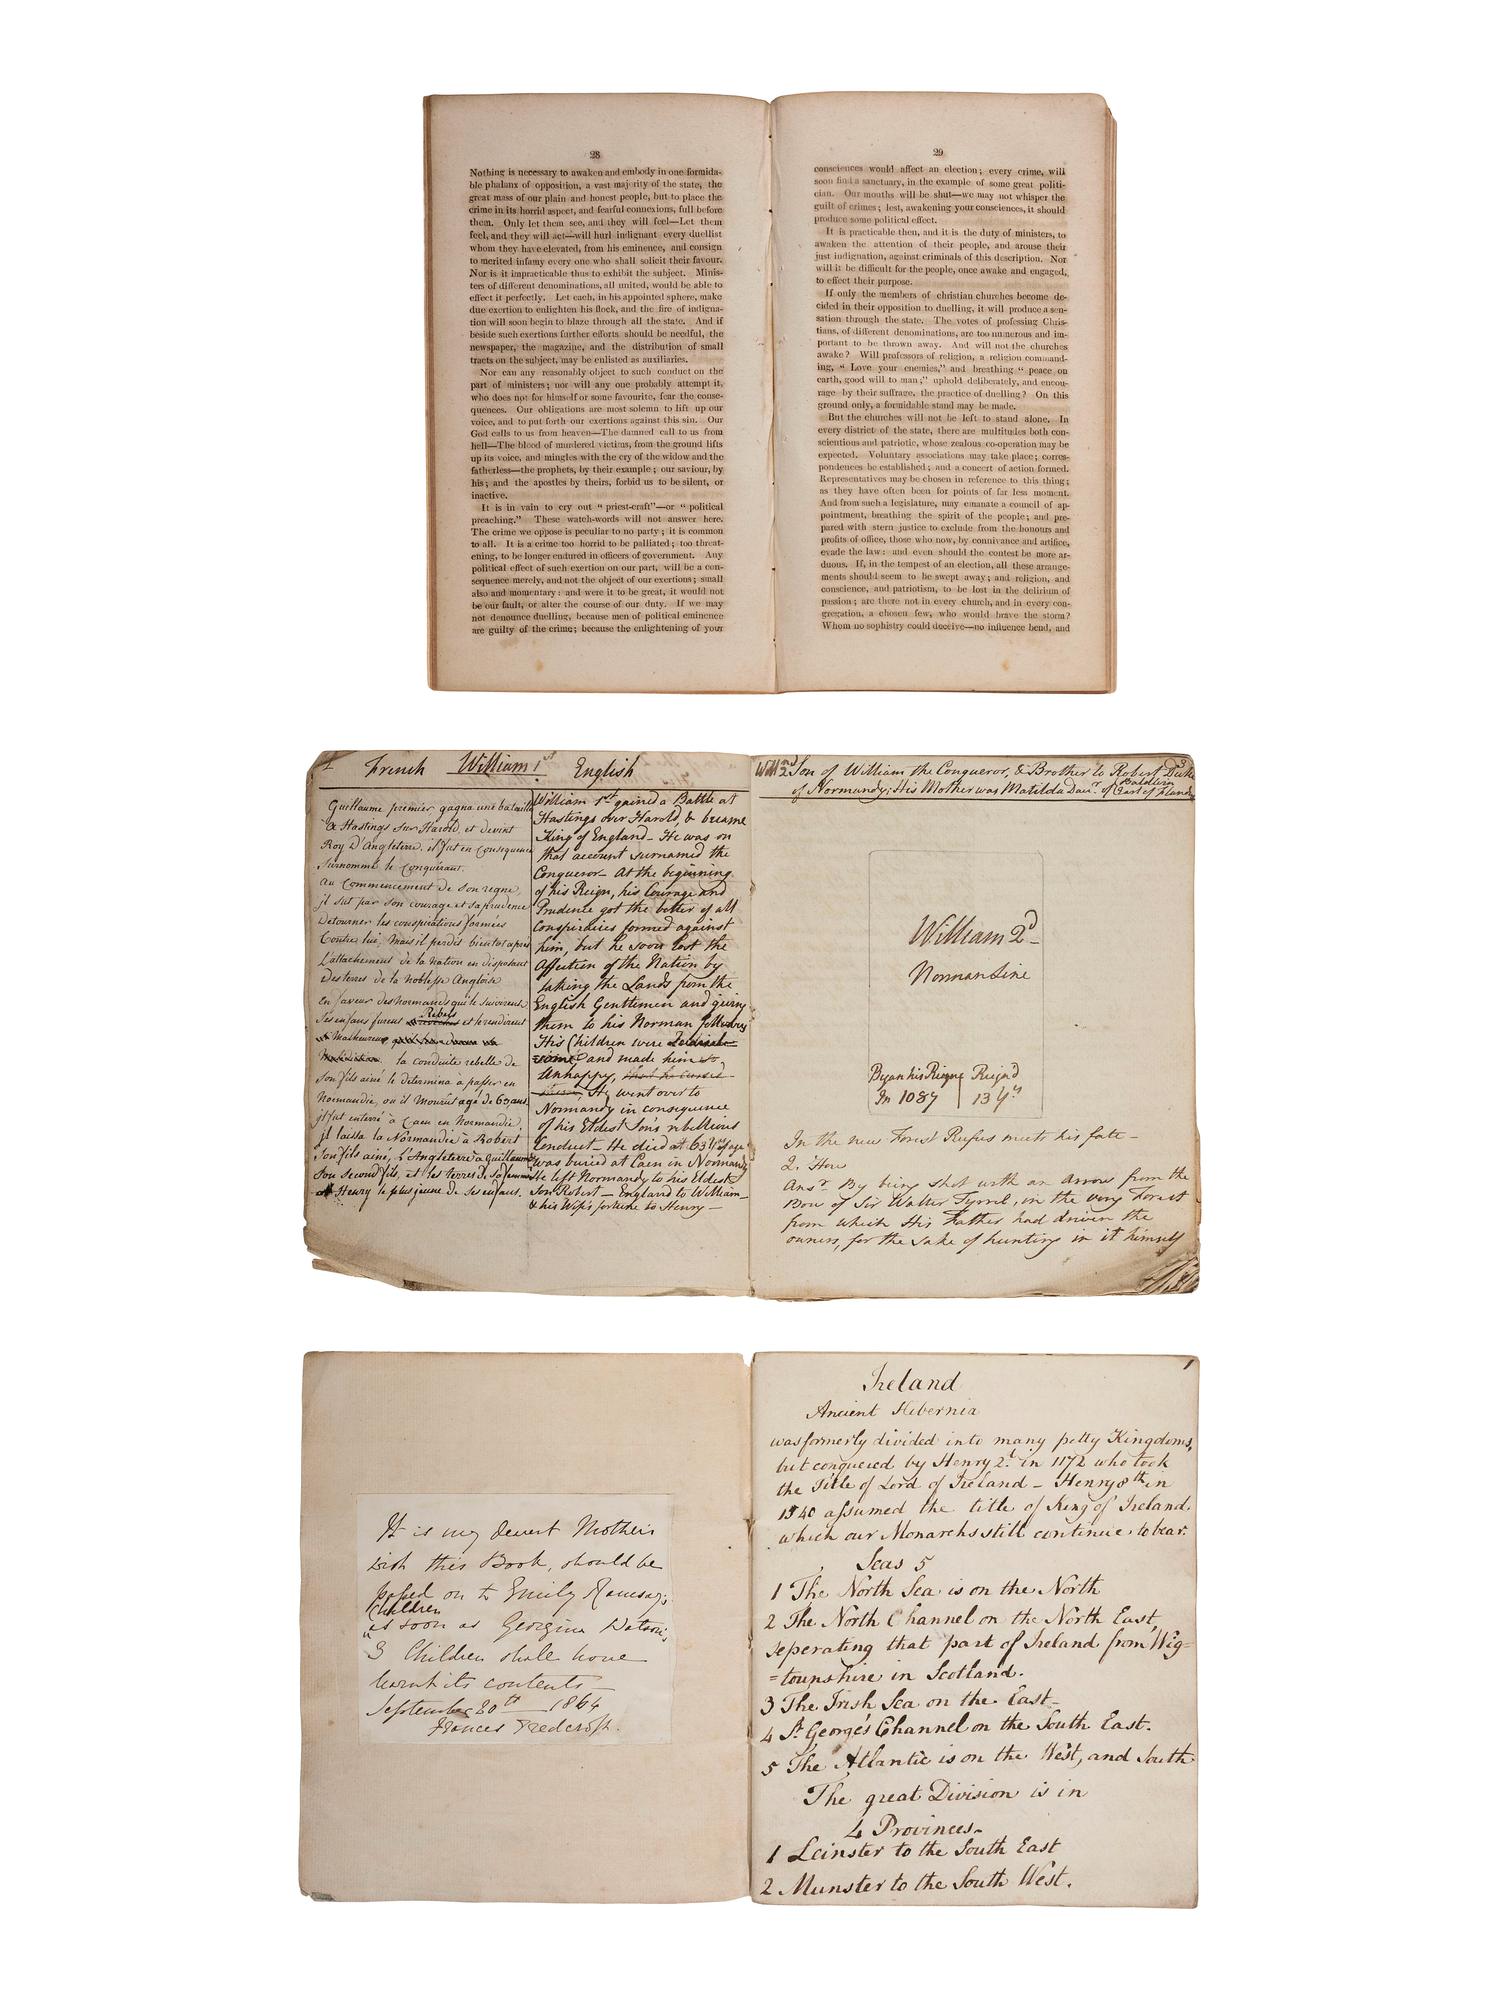 28
Nothing is necessary to awaken and embody in one formida-
ble phalanx of opposition, a vast majority of the state, the
great mass of our plain and honest people, but to place the
crime in its horrid aspect, and fearful connexions, full before
them. Only let them see, and they will feel—Let them
feel, and they will act—will hurl indignant every duellist
whom they have elevated, from his eminence, and consign
to merited infamy every one who shall solicit their favour.
Nor is it impracticable thus to exhibit the subject. Minis-
ters of different denominations, all united, would be able to
effect it perfectly. Let each, in his appointed sphere, make
due exertion to enlighten his flock, and the fire of indigna-
tion will soon begin to blaze through all the state. And if
beside such exertions further efforts should be needful, the
newspaper, the magazine, and the distribution of small
tracts on the subject, may be enlisted as auxiliaries.
Nor can any reasonably object to such conduct on the
part of ministers; nor will any one probably attempt it,
who does not for himself or some favourite, fear the conse-
quences. Our obligations are most solemn to lift up our
voice, and to put forth our exertions against this sin. Our
God calls to us from heaven—The damned call to us from
hell—The blood of murdered victims, from the ground lifts
up its voice, and mingles with the cry of the widow and the
fatherless—the prophets, by their example; our saviour, by
his; and the apostles by theirs, forbid us to be silent, or
inactive.
It is in vain to cry out "priest-craft"—or "political
preaching." These watch-words will not answer here.
The crime we oppose is peculiar to no party; it is common
to all. It is a crime too horrid to be palliated; too threat-
ening, to be longer endured in officers of government. Any
political effect of such exertion on our part, will be a con-
sequence merely, and not the object of our exertions; small
also and momentary: and were it to be great, it would not
be our fault, or alter the course of our duty. If we may
not denounce duelling, because men of political eminence
are guilty of the crime; because the enlightening of your
29
consciences would affect an election; every crime, will
soon find a sanctuary, in the example of some great politi-
cian. Our mouths will be shut—we may not whisper the
guilt of crimes; lest, awakening your consciences, it should
produce some political effect.
It is practicable then, and it is the duty of ministers, to
awaken the attention of their people, and arouse their
just indignation, against criminals of this description. Nor
will it be difficult for the people, once awake and engaged,
to effect their purpose.
If only the members of christian churches become de-
cided in their opposition to duelling, it will produce a sen-
sation through the state. The votes of professing Chris-
tians, of different denominations, are too numerous and im-
portant to be thrown away. And will not the churches
awake? Will professors of religion, a religion command-
ing, "Love your enemies," and breathing "peace on
earth, good will to man;" uphold deliberately, and encou-
rage by their suffrage, the practice of duelling? On this
ground only, a formidable stand may be made.
But the churches will not be left to stand alone. In
every district of the state, there are multitudes both con-
scientious and patriotic, whose zealous co-operation may be
expected. Voluntary associations may take place; corres-
pondences be established; and a concert of action formed.
Representatives may be chosen in reference to this thing;
as they have often been for points of far less moment.
And from such a legislature, may emanate a council of ap-
pointment, breathing the spirit of the people; and pre-
pared with stern justice to exclude from the honours and
profits of office, those who now, by connivance and artifice,
evade the law: and even should the contest be more ar-
duous. If, in the tempest of an election, all these arrange-
ments should seem to be swept away; and religion, and
conscience, and patriotism, to be lost in the delirium of
passion; are there not in every church, and in every con-
gregation, a chosen few, who would brave the storm?
Whom no sophistry could deceive—no influence bend, and
French William 1st English
Guillaume premier gagna une bataille
à Hastings sur Harold, et devint
Roy D'Angleterre. il fut en consequence
Surnommé le Conquérant.
Au Commencement de son regne,
jl sut par son courage et sa prudence
Detourner les conspirations formées
Contre lui, mais il perdit bientot après
L'attachement de la Nation en disposant
Des terres de la noblesse Angloise
en faveur des Normands qui le suivirent
Ses enfans furent Rebels et le rendirent
Malheureux
la conduite rebelle de
Son fils ainé le determina à passer en
Normandie, ou il Mourut agé de 63 ans.
jl fut enterré à Caen en Normandie.
jl laissa la Normandie à Robert
Son fils ainé, L'Angleterre à Guillaume
Son second fils, et les terres de sa femme
à Henry le plus jeune de ses enfans.
William 1st gained a Battle at
Hastings over Harold, & became
King of England— He was on
that account surnamed the
Conqueror— At the beginning
of his Reign, his Courage and
Prudence got the better of all
Conspiracies formed against
him, but he soon lost the
Affection of the Nation by
taking the Lands from the
English Gentlemen and giving
them to his Norman followers
His Children were
and made him so
Unhappy, that he cursed
them. He went over to
Normandy in consequence
of his Eldest Son's rebellious
Conduct— He died at 63 yrs of age
was buried at Caen in Normandy
He left Normandy to his Eldest
Son Robert— England to William—
& his Wife's fortune to Henry—
3
Willm 2nd Son of William the Conqueror, & Brother to Robert Duke
of Normandy; His Mother was Matilda Daur. of Baldwin Earl of Flanders
William 2d
Norman Line
Began his Reigne Reign'd
In 1087 13 ys
In the new Forest Rufus meets his fate—
2. How
Ansr. By being shot with an Arrow from the
Bow of Sir Walter Tyrrel, in the very Forest
from which His Father had driven the
owners, for the sake of hunting in it himself
It is my dearest Mother's
wish this Book, should be
passed on to Emily Ramsay's
Children
as soon as Georgina Watson's
3 Children shall have
learnt its contents—
September 20th — 1864
Frances Fredcroft.
1
Ireland
Ancient Hibernia
was formerly divided into many petty Kingdoms,
but conquered by Henry 2d. in 1172 who took
the Title of Lord of Ireland— Henry 8th in
1540 assumed the title of King of Ireland.
which our Monarchs still continue to bear.
Seas 5
1 The North Sea is on the North
2 The North Channel on the North East,
seperating that part of Ireland from Wig=
=tounshire in Scotland.
3 The Irish Sea on the East—
4 St George's Channel on the South East.
5 The Atlantic is on the West, and South
The great Division is in
4 Provinces—
1 Leinster to the South East
2 Munster to the South West.